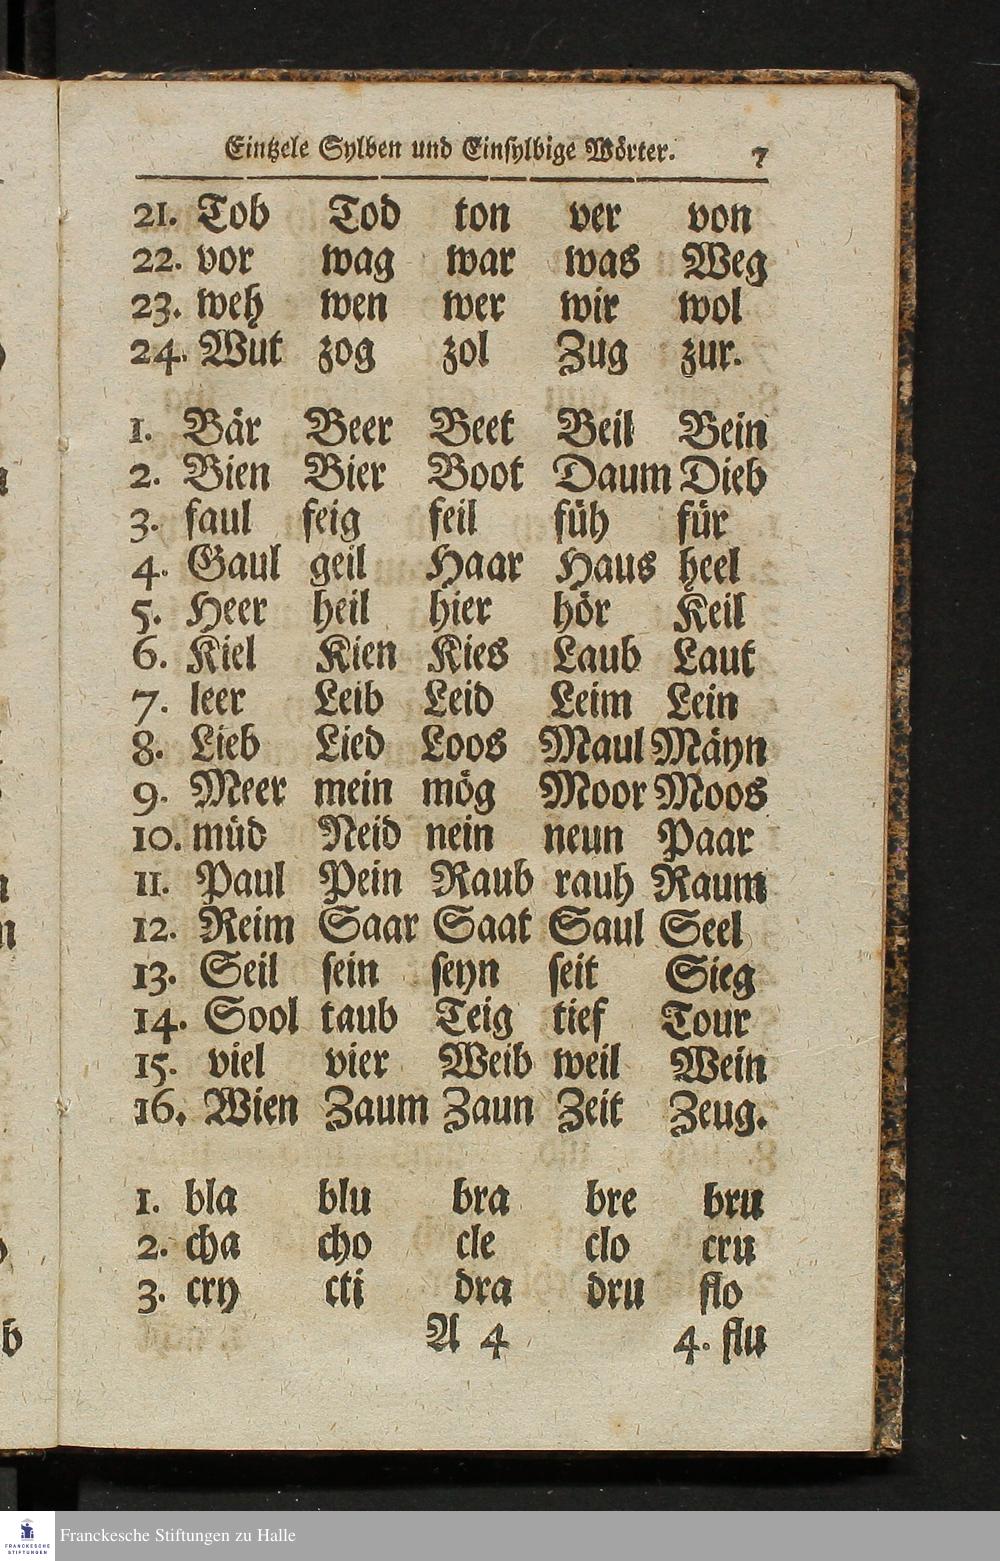 Eintzele Sylben und Einsylbige Wörter. 7
21. Tob Tod ton ver von
22. vor wag war was Weg
23. weh wen wer wir wol
24. Wut zog zol Zug zur.
1. Bär Beer Beet Beil Bein
2. Bien Bier Boot Daum Dieb
3. faul feig feil füh für
4. Gaul geil Haar Haus heel
5. Heer heil hier hör Keil
6. Kiel Kien Kies Laub Laut
7. leer Leib Leid Leim Lein
8. Lieb Lied Loos Maul Mäyn
9. Meer mein mög Moor Moos
10. müd Neid nein neun Paar
11. Paul Pein Raub rauh Raum
12. Reim Saar Saat Saul Seel
13. Seil sein seyn seit Sieg
14. Sool taub Teig tief Tour
15. viel vier Weib weil Wein
16. Wien Zaum Zaun Zeit Zeug.
1. bla blu bra bre bru
2. cha cho cle clo cru
3. cry cti dra dru flo
A 4 4. flu
Franckesche Stiftungen zu Halle
FRANCKESCHE
STIFTUNGEN